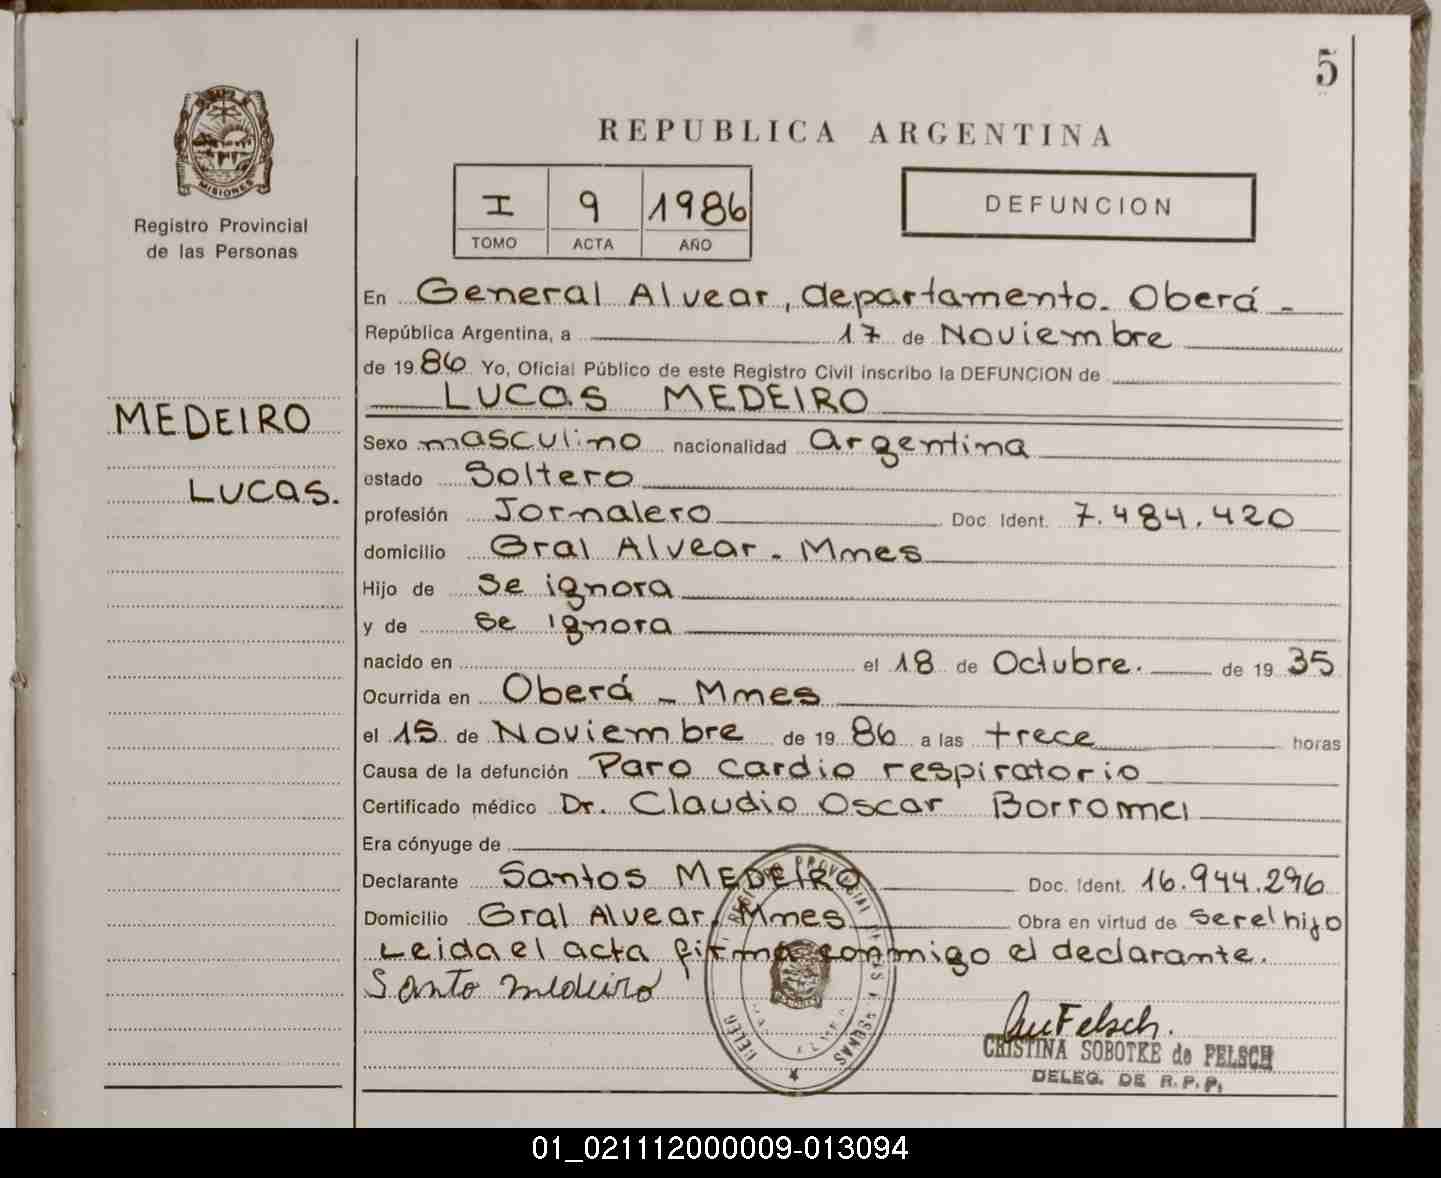 5
REPUBLICA ARGENTINA
MISIONES
Registro Provincial
de las Personas
I 9 1986
TOMO ACTA AÑO
DEFUNCION
MEDEIRO
LUCAS.
En General Alvear, departamento. Oberá -
República Argentina, a 17 de Noviembre
de 1986 Yo, Oficial Público de este Registro Civil inscribo la DEFUNCION de
LUCAS MEDEIRO
Sexo masculino nacionalidad argentina
estado Soltero
profesión Jornalero Doc. Ident. 7.484.420
domicilio Gral Alvear - Mnes
Hijo de se ignora
y de se ignora
nacido en el 18 de Octubre. de 1935
Ocurrida en Oberá - Mnes
el 15 de Noviembre de 1986 a las trece horas
Causa de la defunción Paro cardio respiratorio
Certificado médico Dr. Claudio Oscar Borromei
Era cónyuge de
Declarante Santos MEDEIRO Doc. Ident. 16.944.296
Domicilio Gral Alvear, Mnes Obra en virtud de ser el hijo
Leida el acta firma conmigo el declarante.
Santo medeiro
REGISTRO PROVINCIAL DE LAS PERSONAS
DELEG
Felsch.
CRISTINA SOBOTKE de FELSCH
DELEG. DE R.P.P.
01_021112000009-013094